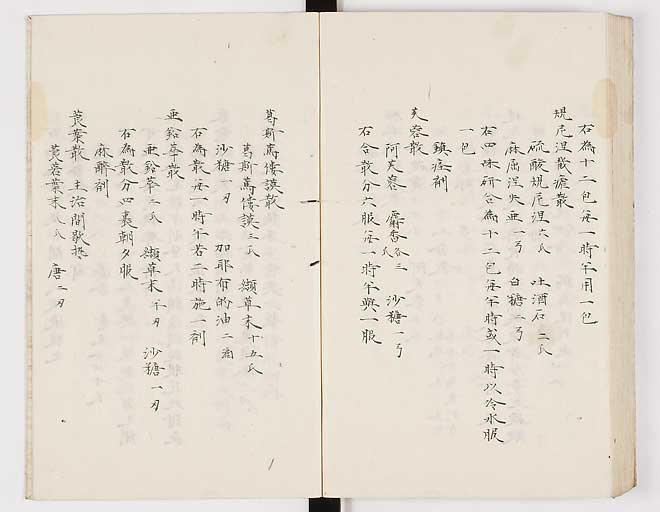 右為十二包每一時半用一包
規尼涅幾癧散
硫酸規尼涅六氏 吐酒石二氏
麻屈涅失亜一弓 白糖二弓
右四味研合為十二包每半時或一時以冷水服
一包
鎮痙剤
芙蓉散
阿芙蓉 麝香各三氏 沙糖一弓
右合散分六服每一時半與一服
葛斯篤僂謨散
葛斯篤僂謨三氏 纈草末十五氏
沙糖一刃 加耶布的油二滴
右為散每一時半若二時施一剤
亜鉛華散
亜鉛華二氏 纈草末半刃 沙糖一刃
右為散分四裹朝夕服
麻酔剤
莨菪散 主治間歇熱
莨菪葉末八氏 唐二刃